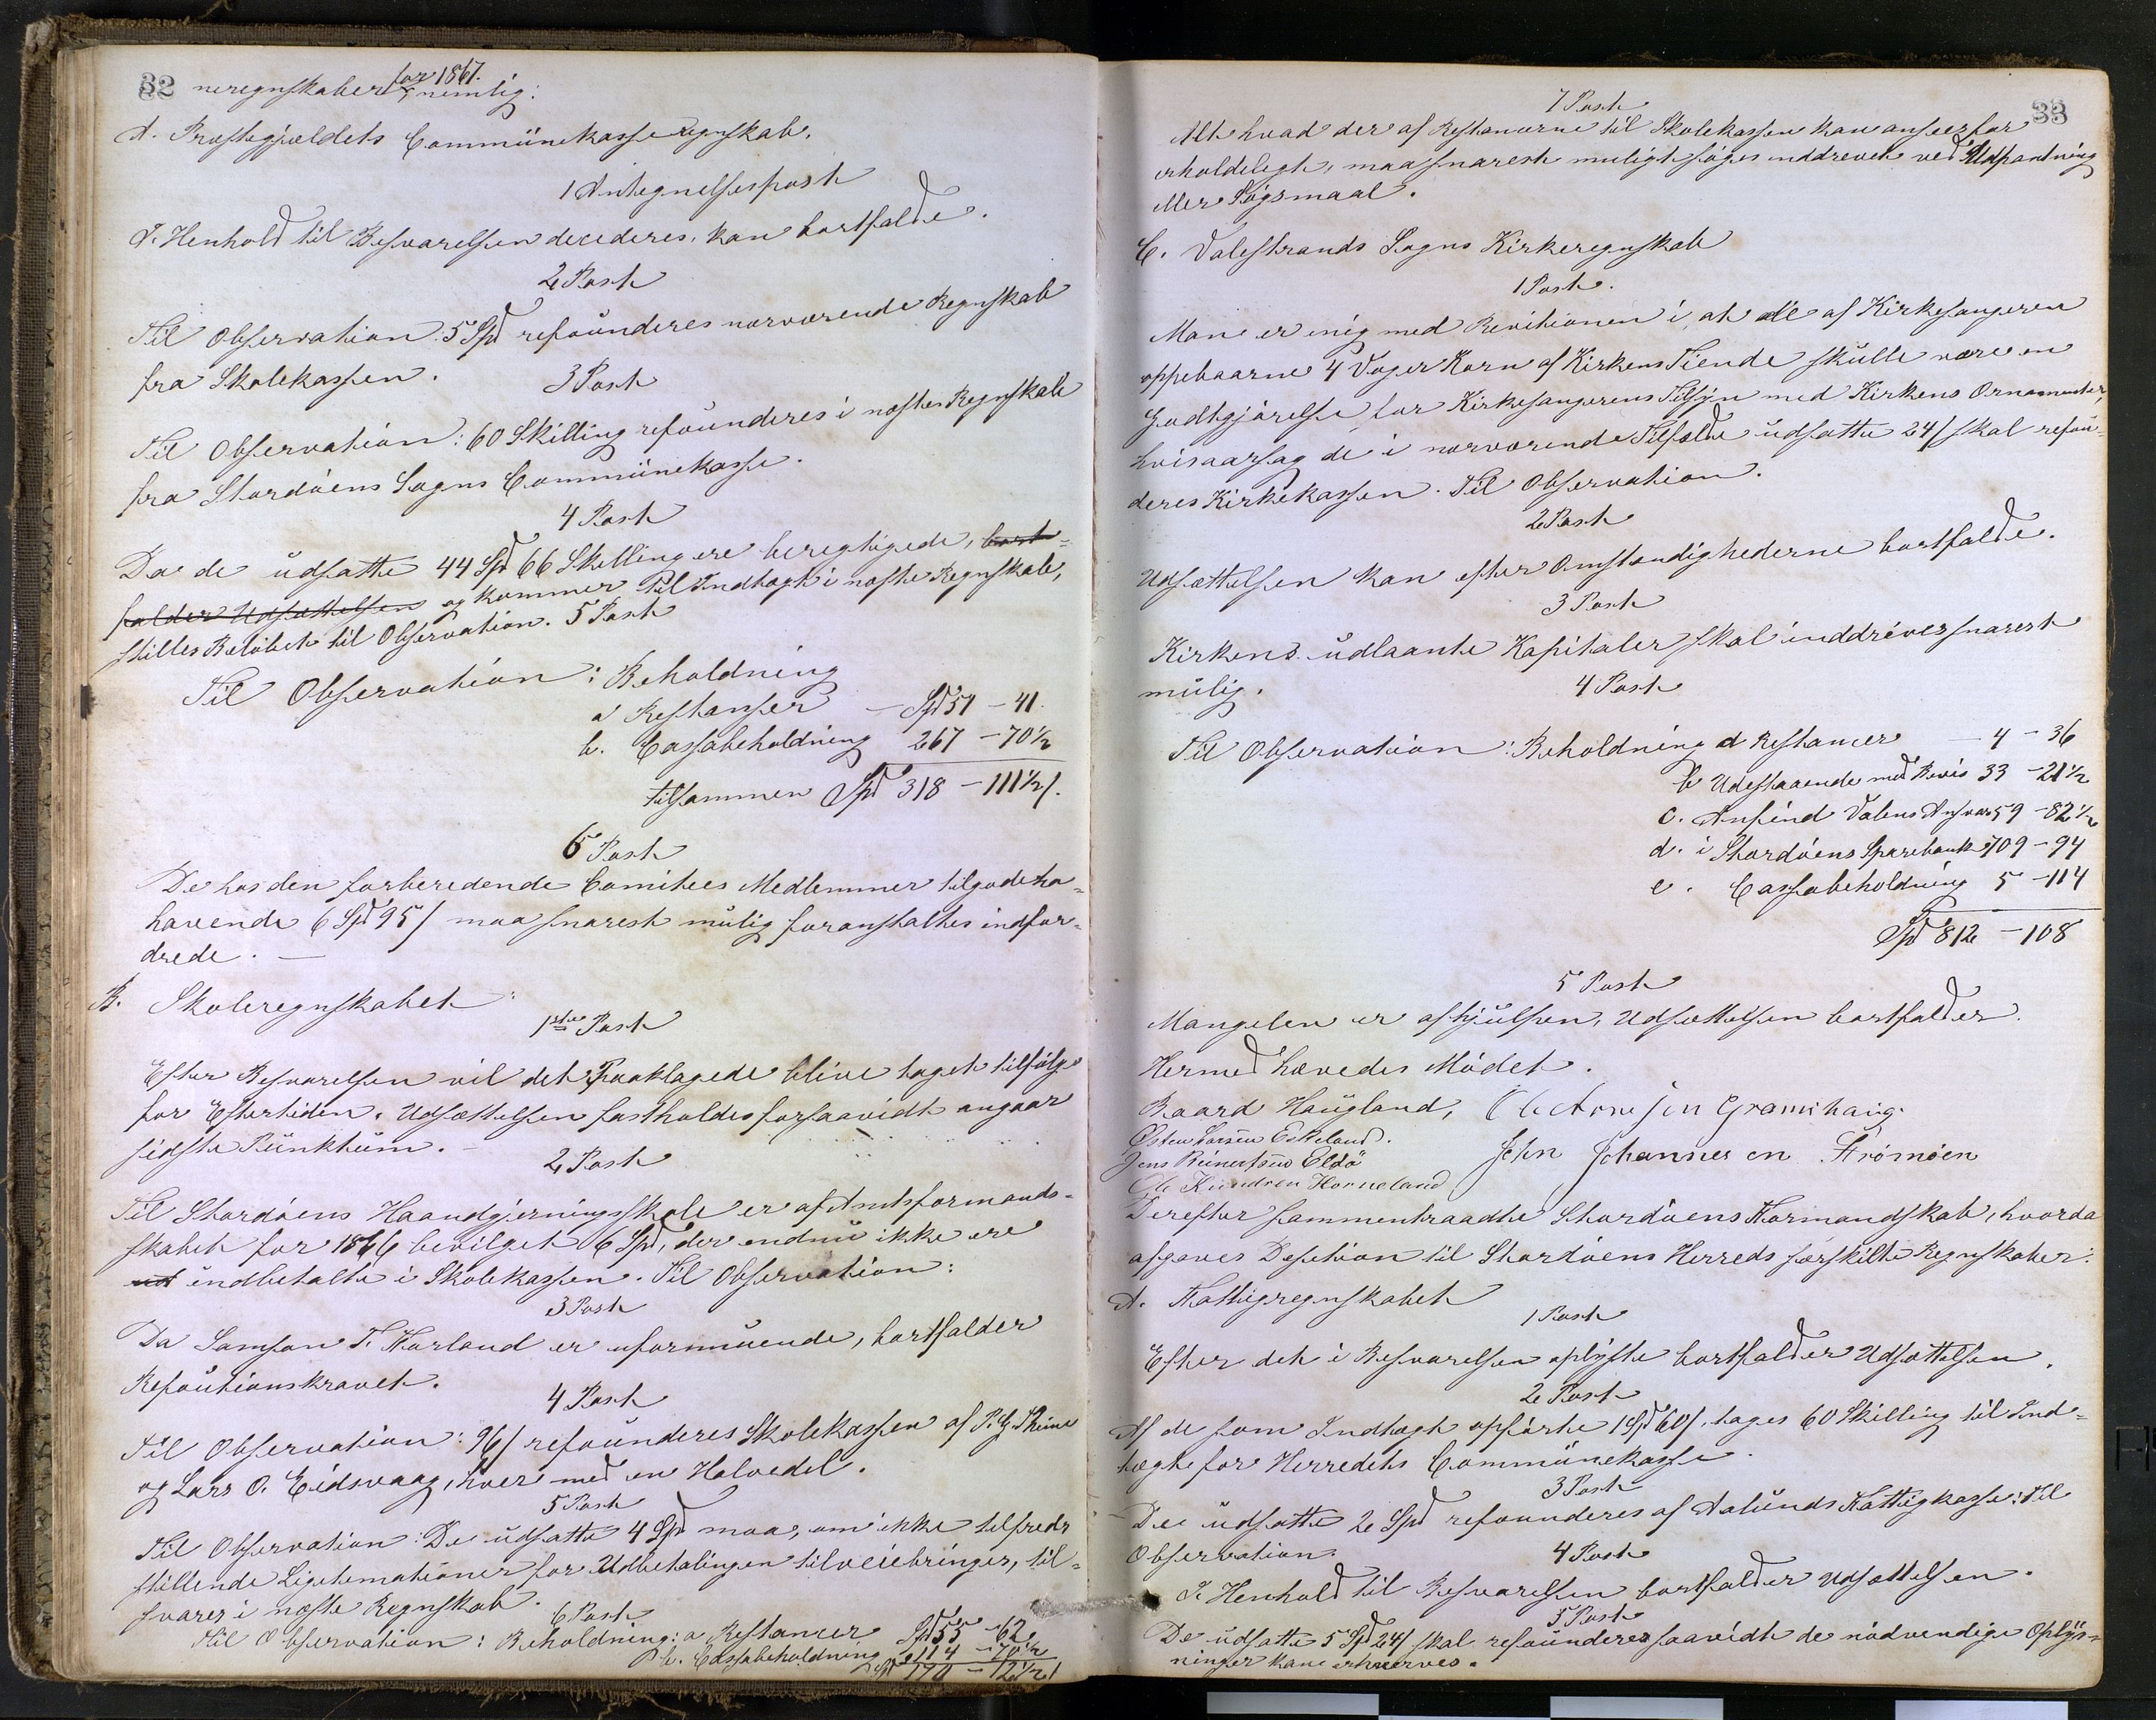 32 neregnskaber for 1867. nemlig:
A. Præstegjældets Communekasseregnskab.
1 Antegnelsespost
I Henhold til Besvarelsen decideres, kan bortfalde.
2 Post
Til Observation: 5 Spd refounderes nærværende Regnskab
fra Skolekassen.
3 Post
Til Observation: 60 Skilling refounderes i næste Regnskab
fra Stordøens Sogns Communekasse.
4 Post
Da de udsatte 44 Spd 66 Skilling ere beregtigede, bort-
falder Udsættelsen og kommer til Indtægt i næste Regnskab,
stilles Beløbet til Observation.
5 Post
Til Observation: Beholdning
a Restanser – Spd 51 – 41.
b. Cassabeholdning 267 – 70 1/2
tilsammen Spd 318 – 111 1/2 /.
6 Post
De hos den forberedende Comitees Medlemmer tilgodeha-
havende 6 Spd 95/ maa snarest mulig foranstaltes indfor-
drede. —
B. Skoleregnskabet:
1ste Post
Efter Besvarelsen vil det Paaklagede blive taget tilfølge
for Eftertiden. Udsættelsen fastholdes forsaavidt angaar
sidste Punktum. –
2 Post
Til Stordøens Haandgjerningsskole er af Amtsformand-
skabet for 1866 bevilget 6 Spd, der endnu ikke ere
ud indbetalte i Skolekassen. Til Observation:
3 Post
Da Samson T. Hörland er uformuende, bortfalder
Refoutionskravet.
4 Post
Til Observation: 96/ refounderes Skolekassen af P. G.
og Lars O. Eidsvaag, hver med en Halvedel.
5 Post
Til Observation: De udsatte 4 Spd maa, om ikke tilfreds
stillende Ligetemationer for Udbetalingen tilveiebringes, til-
svares i næste Regnskab.
6 Post
Til Observation: Beholdning: a, Restancer Spd 55 – 62
b. Cassabeholdning 114 – 70 1/2
Spd 170 – 12 1/2 /
33
7 Post
Alt hvad der af Restancerne til Skolekassen kan ansees for
erholdeligt, maa snarest muligt søges inddrevet ved Udpantning
eller Søgsmaal.
C. Valestrands Sogns Kirkeregnskab
1 Post.
Man er enig med Revisionen i, at de af Kirkesangeren
oppebaarne 4 Voger Korn af Kirkens Tiende skulle være en
Godtgjørelse for Kirkesangerens Tilsyn med Kirkens Ornamenter,
hvisaarsag de i nærværende Tilfælde udsatte 24/ skal refoun-
deres Kirkekassen. Til Observation.
2 Post
Udsættelsen kan efter Omstændighederne bortfalde.
3 Post
Kirkens udlaante Kapitaler skal inddrives snarest
mulig.
4 Post
Til Observation: Beholdning a Restancer – 4 – 36
b Udestaaende med Bevis 33 – 21 1/2
c. Anfind Valens Ansvar 59 – 82 1/2
d. i Stordøens Sparebank 709 – 94
e. Cassabeholdning 5 – 114
Spd 812 – 108
5 Post
Mangelen er afhjulpen, Udsættelsen bortfalder.
Hermed hævedes Mødet.
Baard Haugland, Ole Arnesen Gramshaug.
Østen Larsen Eskeland.
Jens Reinertsen Eldø John Johannesen Strömöen
Ole Knudsen Horneland
Derefter sammentraadte Stordøens Formandskab, hvorda
afgaves Desition til Stordøens Herreds særskilte Regnskaber:
A. Fattigregnskabet
1 Post
Efter det i Besvarelsen oplyste bortfalder Udsættelsen.
2 Post
Af de som Indtægt opførte 1 Spd 60/, tages 60 Skilling til Ind-
tægt for Herredets Communekasse.
3 Post
De udsatte 2 Spd refounderes af Aalunds Fattigkasse: Til
Observation.
4 Post
I Henhold til Besvarelsen bortfalder Udsættelsen.
5 Post
De udsatte 5 Spd 24/ skal refounderes saavidt de nødvendige Oplys-
ninger kan erhverves.